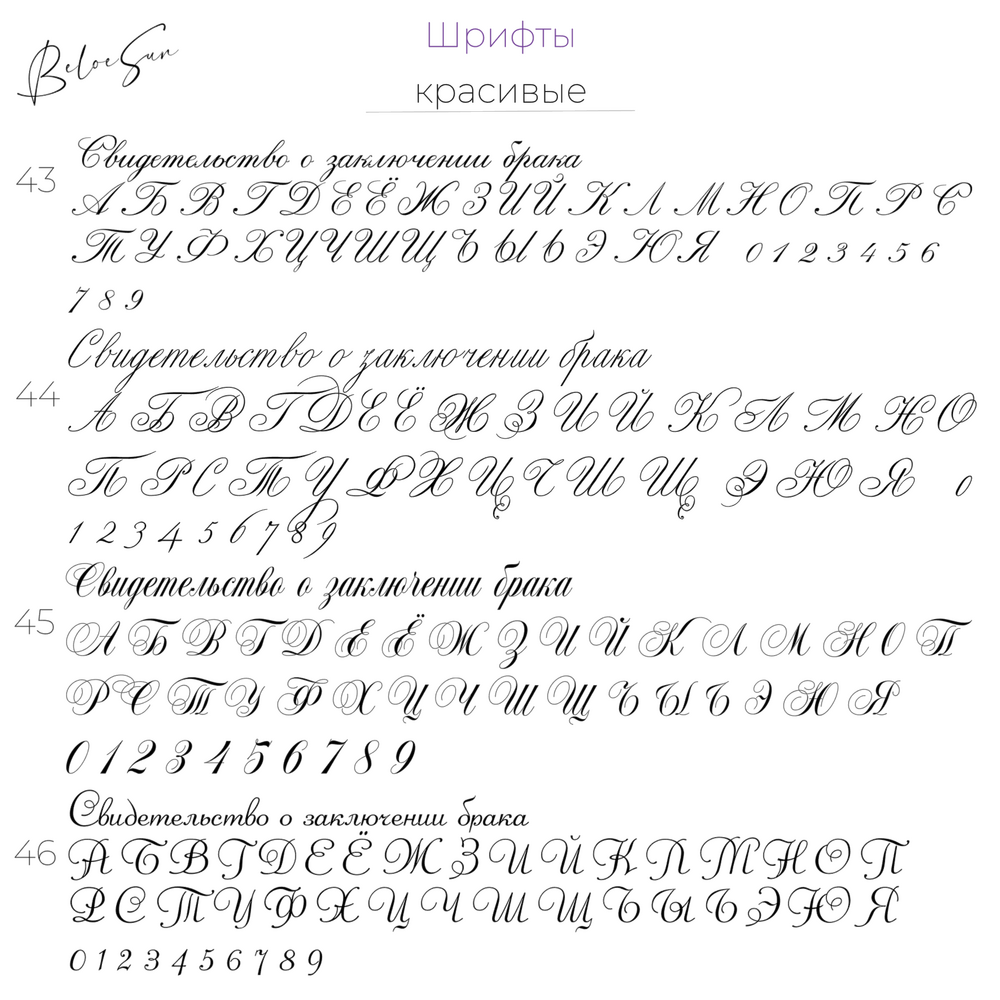 BeloeSun
Шрифты
красивые
43
Свидетельство о заключении брака
А Б В Г Д Е Ё Ж З И Й К Л М Н О П Р С
Т У Ф Х Ц Ч Ш Щ Ъ Ы Ь Э Ю Я 0 1 2 3 4 5 6
7 8 9
44
Свидетельство о заключении брака
А Б В Г Д Е Ё Ж З И Й К Л М Н О
П Р С Т У Ф Х Ц Ч Ш Щ Э Ю Я 0
1 2 3 4 5 6 7 8 9
45
Свидетельство о заключении брака
А Б В Г Д Е Ё Ж З И Й К Л М Н О П
Р С Т У Ф Х Ц Ч Ш Щ Ъ Ы Ь Э Ю Я
0 1 2 3 4 5 6 7 8 9
46
Свидетельство о заключении брака
А Б В Г Д Е Ё Ж З И Й К Л М Н О П
Р С Т У Ф Х Ц Ч Ш Щ Ъ Ы Ь Э Ю Я
0 1 2 3 4 5 6 7 8 9